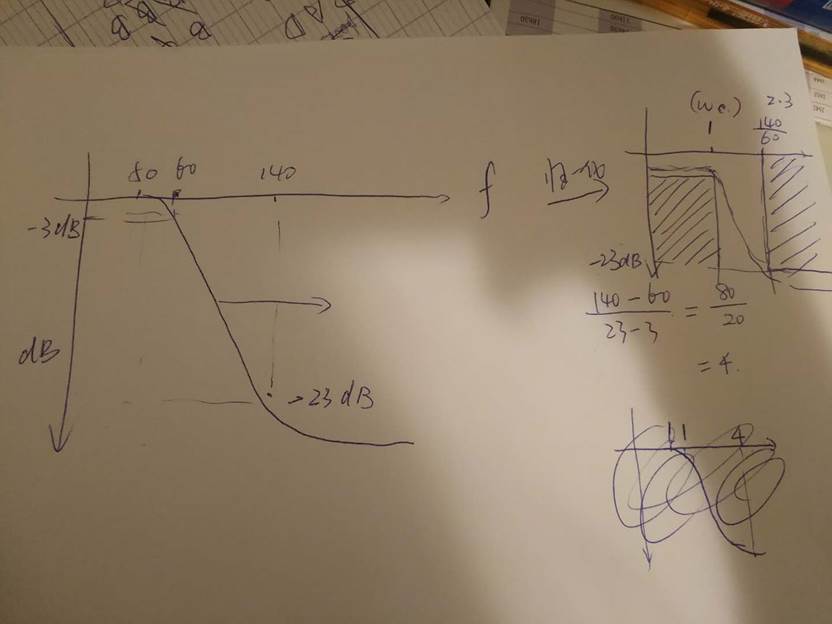 50 60 140
f
-3dB
dB
-23dB
(ωc) 2.3
1 140/60
-23dB
140-60/23-3 = 80/20
= 4.
1 4